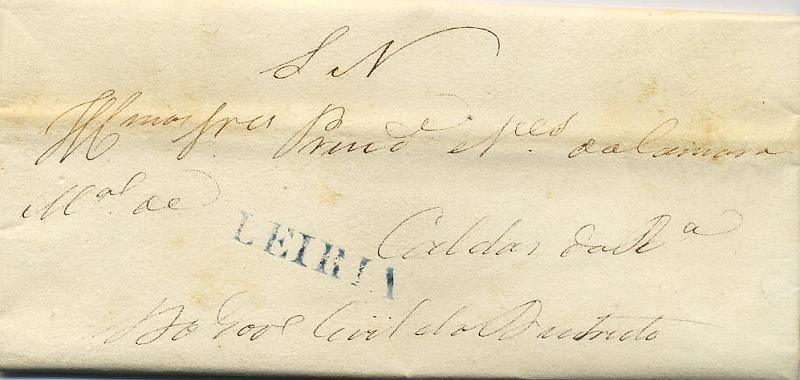 S N
Illmos Snres Presid.e e V.es da Camara
M.al de
LEIRIA
Caldas da R.a
Do Gov.o Civil do Districto